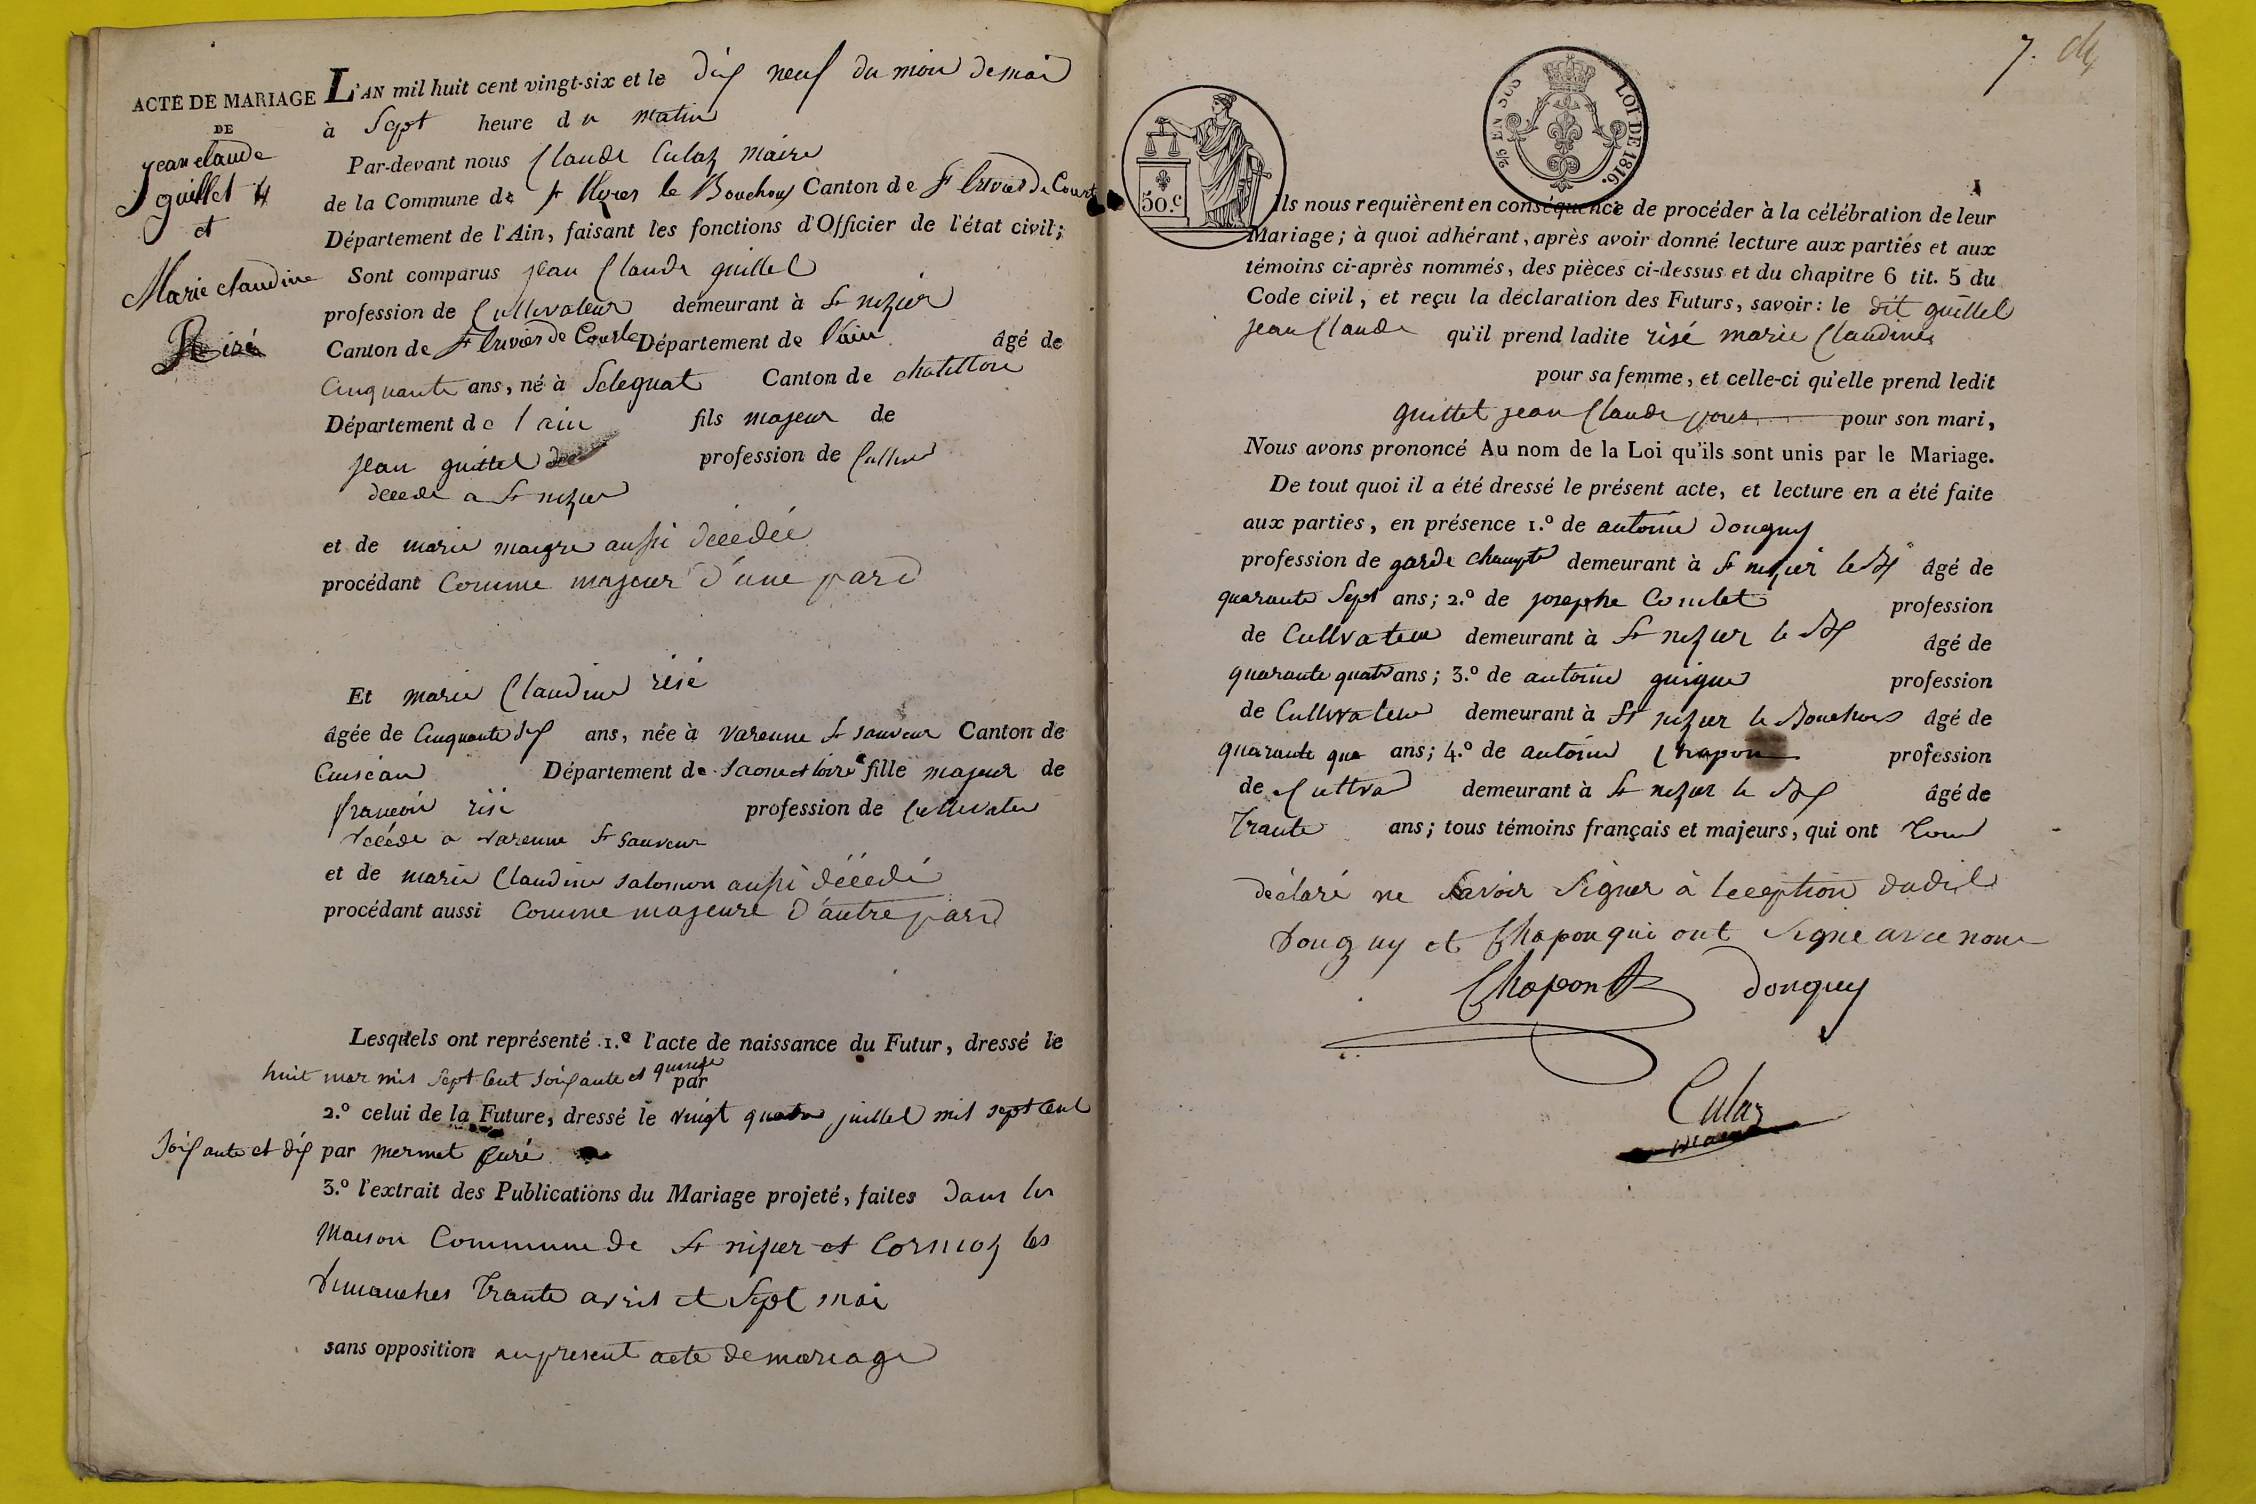 ACTE DE MARIAGE
DE
jean claude
guillet
et
Marie claudine
Risé
L'AN mil huit cent vingt-six et le dix neuf du mois de mai
à Sept heure du matin
Par-devant nous Claude Culaz maire
de la Commune de st Nizier le Bouchoux Canton de st trivier de Court
Département de l'Ain, faisant les fonctions d'Officier de l'état civil;
Sont comparus jean Claude guillet
profession de Cultivateur demeurant à st nizier
Canton de st trivier de Courte Département de l'ain âgé de
Cinquante ans, né à Seleguat Canton de chatillon
Département de l'ain fils majeur de
jean guillet profession de Cultiva
décédé a st nizier
et de marie maigre aussi décédée
procédant Comme majeur d'une pard
Et marie Claudine risé
âgée de Cinquante six ans, née à varenne st sauveur Canton de
Cuiseau Département de Saone et loire fille majeur de
francois risé profession de Cultivateu
décédé a varenne st sauveur
et de marie Claudine salomon aussi décédé
procédant aussi Comme majeure d'autre pard
Lesquels ont représenté 1.º l'acte de naissance du Futur, dressé le
huit mar mil sept Cent soixante et quinze par
2.º celui de la Future, dressé le vingt quatre juillet mil sept Cent
soixante et dix par mermet Curé
3.º l'extrait des Publications du Mariage projeté, faites dans les
maison Commune de st nizier et Cormoz les
dimanches trante avril et Sept mai
sans opposition au present acte de mariage
7.
50.c
2/5 EN SUS
LOI DE 1816.
Ils nous requièrent en conséquence de procéder à la célébration de leur
Mariage; à quoi adhérant, après avoir donné lecture aux parties et aux
témoins ci-après nommés, des pièces ci-dessus et du chapitre 6 tit. 5 du
Code civil, et reçu la déclaration des Futurs, savoir: le dit guillet
jean Claude qu'il prend ladite risé marie Claudine
pour sa femme, et celle-ci qu'elle prend ledit
guillet jean Claude pour pour son mari,
Nous avons prononcé Au nom de la Loi qu'ils sont unis par le Mariage.
De tout quoi il a été dressé le présent acte, et lecture en a été faite
aux parties, en présence 1.º de antoine donguy
profession de garde champt demeurant à st nizier le Bx âgé de
quarante Sept ans; 2.º de josephe Comlet profession
de Cultivateur demeurant à st nizier le Bx âgé de
quarante quatr ans; 3.º de antoine guigue profession
de Cultivateur demeurant à st nizier le Bouchoux âgé de
quarante qua ans; 4.º de antoine Chapon profession
de Cultiva demeurant à st nizier le Bx âgé de
Trante ans; tous témoins français et majeurs, qui ont tous
déclaré ne Savoir Signer à leception dudit
donguy et Chapon qui ont Signé avec nous
Chapon donguy
Culaz
maire